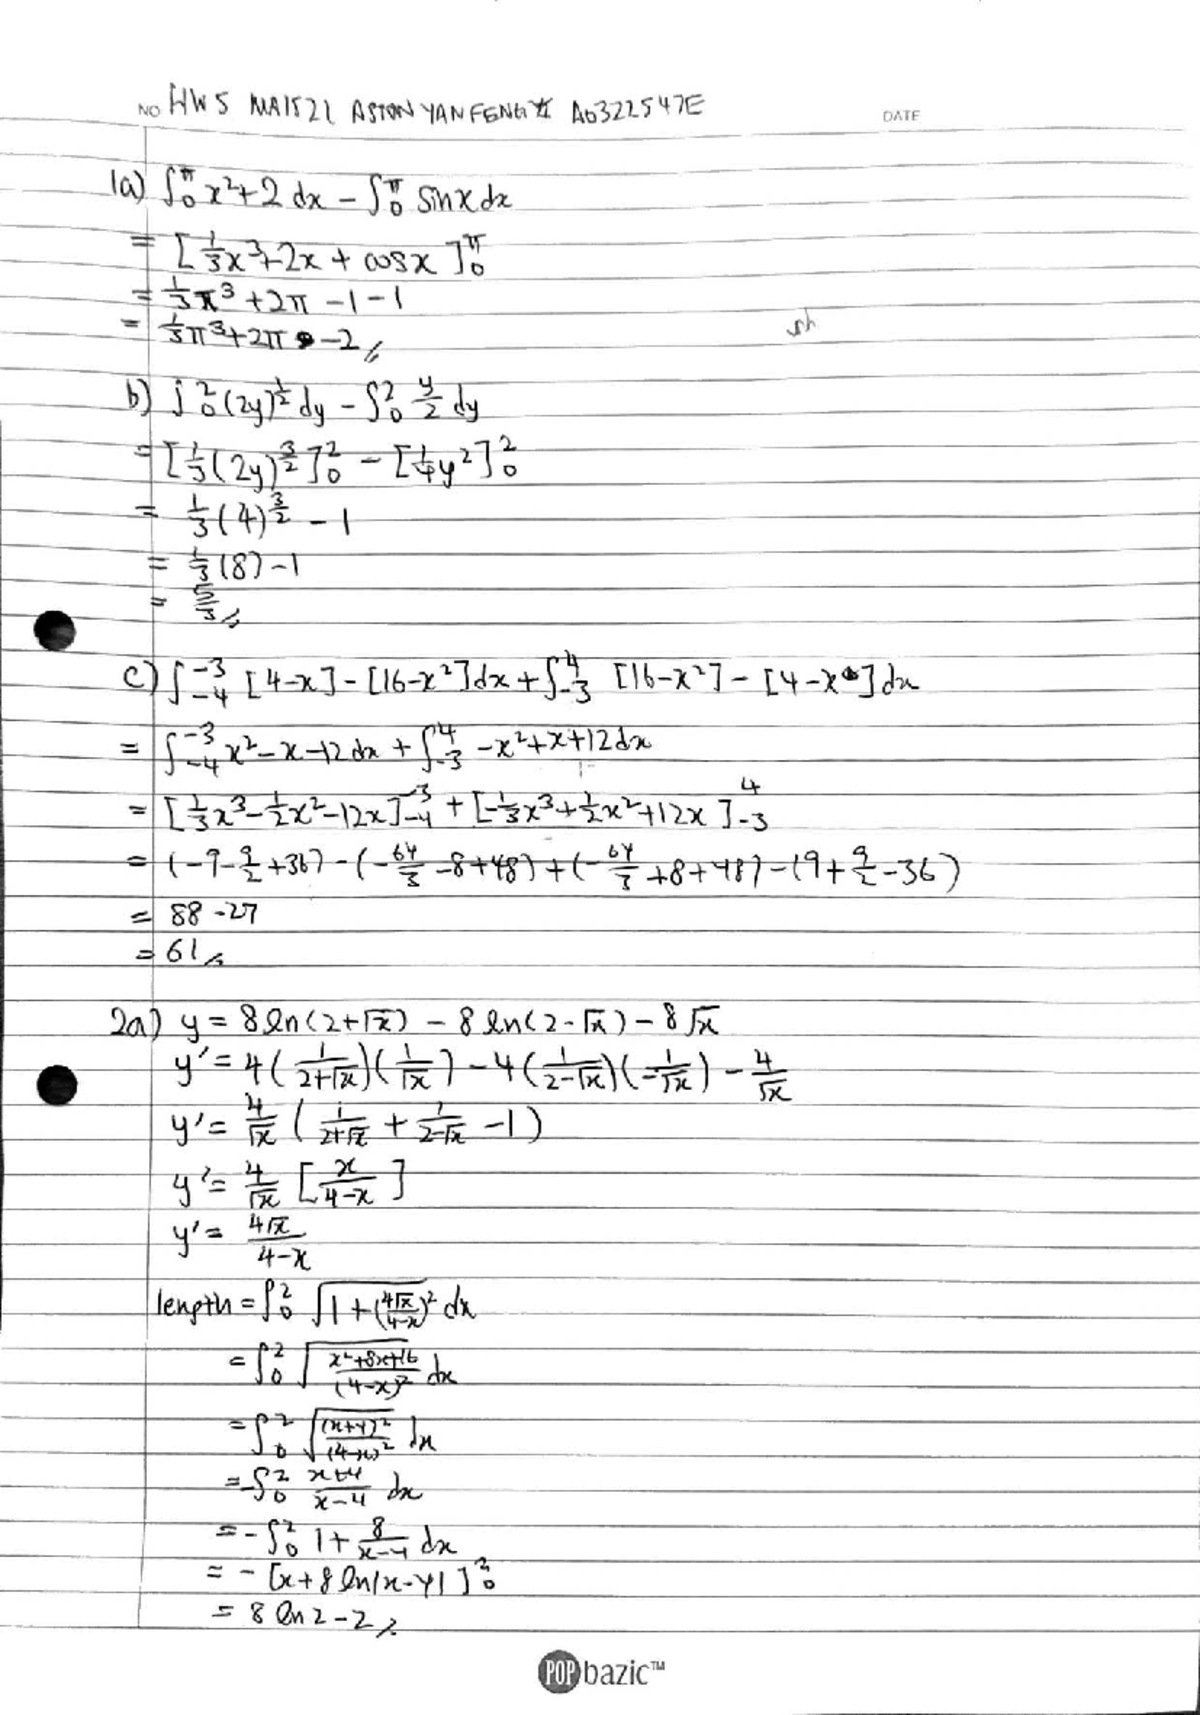 NO. HW5 MA1521 ASTON YAN FENGYI A0322547E DATE
1a) ∫₀^π x²+2 dx − ∫₀^π sinx dx
= [⅓x³+2x + cosx]₀^π
= ⅓π³ +2π −1−1
= ⅓π³+2π −2
sh
b) ∫₀²(2y)^½ dy − ∫₀² y/2 dy
= [⅓(2y)^(3/2)]₀² − [¼y²]₀²
= ⅓(4)^(3/2) − 1
= ⅓(8)−1
= 5/3
c) ∫₋₄^−3 [4−x]−[16−x²]dx + ∫₋₃^4 [16−x²] − [4−x]dx
= ∫₋₄^−3 x²−x−12 dx + ∫₋₃^4 −x²+x+12dx
= [⅓x³−½x²−12x]₋₄^−3 + [−⅓x³+½x²+12x]₋₃^4
= (−9−9/2+36) − (−64/3−8+48) + (−64/3+8+48) − (9+9/2−36)
= 88−27
= 61
2a) y = 8ln(2+√x) − 8 ln(2−√x) − 8√x
y' = 4(1/(2+√x))(1/√x) − 4(1/(2−√x))(−1/√x) − 4/√x
y' = 4/√x (1/(2+√x) + 1/(2−√x) −1)
y' = 4/√x [x/(4−x)]
y' = 4√x/(4−x)
length = ∫₀² √(1+(4√x/(4−x))²) dx
= ∫₀² √((x²+8x+16)/(4−x)²) dx
= ∫₀² √((x+4)²/(4−x)²) dx
= −∫₀² (x+4)/(x−4) dx
= −∫₀² 1+ 8/(x−4) dx
= −[x+8 ln|x−4|]₀²
= 8 ln2−2
POP bazic™